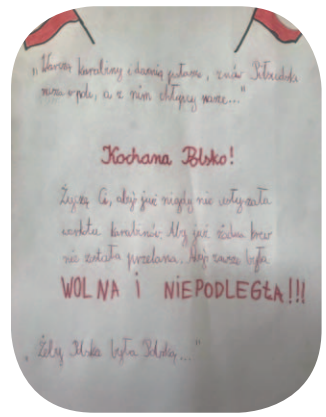 "Warczą karabiny i dzwonią pałasze, znów Piłsudski
rusza w pole, a z nim chłopcy nasze..."
Kochana Polsko!
Życzę Ci, abyś już nigdy nie usłyszała
karabinów. Aby już żadna krew
nie została przelana. Abyś zawsze była
WOLNA i NIEPODLEGŁA!!!
"Żeby Polska była Polską..."